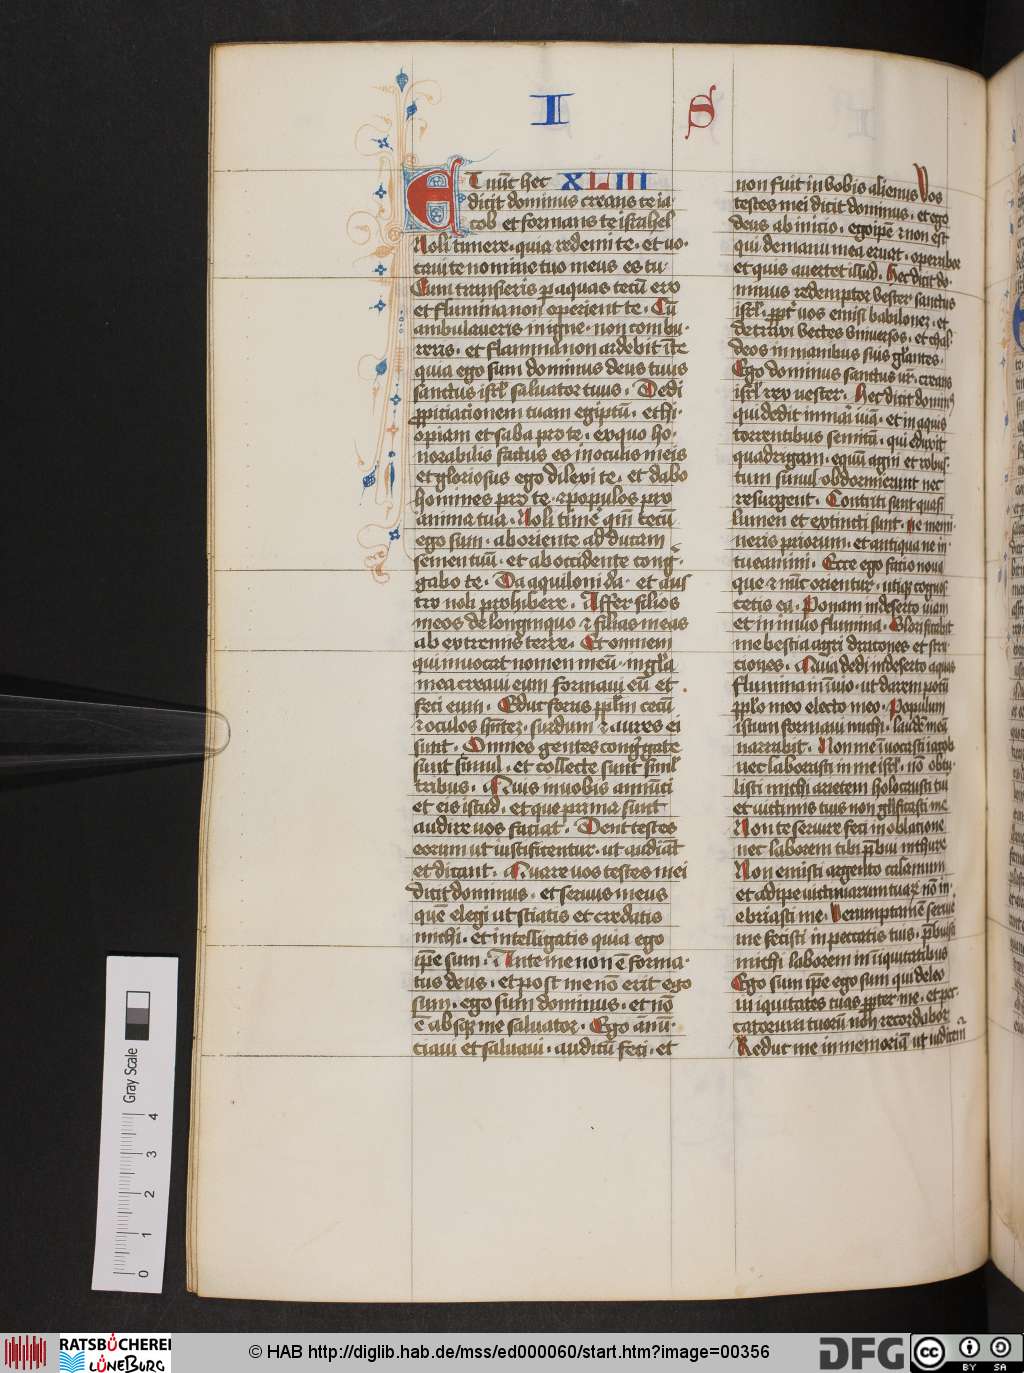 I S
Et nūc hec XLIII
dicit dominus creans te ia
cob et formans te israhel
Noli timere · quia redemi te · et vo·
caui te nomine tuo meus es tu·
Cum transieris p aquas tecū ero
et flumina non operient te · Cū
ambulaueris in igne · non combu·
reris · et flamma non ardebit ī te
quia ego sum dominus deus tuus
sanctus isrl saluator tuus · Dedi
ppitiationem tuam egiptū · ethi·
opiam et saba pro te · ex quo ho·
norabilis factus es in oculis meis
et gloriosus ego dilexi te · et dabo
homines pro te · ⁊ populos pro
anima tua · Noli timē qm̄ tecū
ego sum · ab oriente adducam
semen tuū · et ab occidente cong̃·
gabo te · Da aquiloni da · et aus
tro noli prohibere · Affer filios
meos de longinquo ⁊ filias meas
ab extremis terre · Et omnem
qui inuocat nomen meū · in gl̄a
mea creaui eum formaui eū et
feci eum · Educ foras pplm cecū
⁊ oculos hn̄tez · surdum ⁊ aures ei
sunt · Omnes gentes cong̃gate
sunt simul · et collecte sunt simĺ
tribus · Quis in uobis annūci
et eis istud · et que prima sunt
audire uos faciat · Dent testes
eorum ut iustificentur · ut audiāt
et dicant · Quare uos testes mei
dicit dominus · et seruus meus
quē elegi ut sciatis et credatis
michi · et intelligatis quia ego
ipse sum · Ante me non ē forma·
tus deus · et post me nō erit ego
sum · ego sum dominus · et nō
ē absqz me saluator · Ego anū·
ciaui et saluaui · auditū feci · et
non fuit in vobis alienus Vos
testes mei dicit dominus · et ego
deus ab inicio · ego ipse ⁊ non est
qui de manu mea eruat · operabor
et quis auertet illud · Hec dicit do·
minus redemptor vester sanctus
isrl · ppt̉ uos emisi babilonez · et
detraxi vectes vniuersos · et chal·
deos in manibus suis gl̄antes ·
Ego dominus sanctus ur̄ · creans
isrl rex uester · Hec dicit dominꝰ
qui dedit in mari uiā · et in aquis
torrentibus semitā · qui eduxit
quadrigam · equū agmē et robus·
tum simul obdormierunt nec
resurgent · Contriti sunt quasi
lumen et extincti sunt · ne memi·
neris priorum · et antiqua ne in·
tueamini · Ecce ego facio noua
que ⁊ nūc orientur · utiqz cognos·
cetis ea · Ponam in deserto uiam
et in inuio flumina · Glorificabit
me bestia agri dracones et stru
ciones · Quia dedi in deserto aquas
flumina in īuio · ut darem potū
pplo meo electo meo · Populum
istum formaui michi · laudē meā
narrabit · Non me īuocasti iacob
nec laborasti in me isrl · nō obtu·
listi michi arietem holocausti tui
et uictimis tuis non gl̄ificasti me
Non te seruire feci in oblatione
nec laborem tibi p̄bui in thure
Non emisti argento calamum
et adipe uictimarum tuaꝝ nō in·
ebriasti me · Verumptamē seruire
me fecisti in peccatis tuis · p̄buisti
michi laborem in iniquitatibus
Ego sum ipse ego sum qui deleo
iniquitates tuas ppter me · et pec·
catorum tuorū non recordabor
Reduc me in memoriā ut iudicem̉
Gray Scale
0 1 2 3 4
RATSBÜCHEREI
LÜNEBURG
© HAB http://diglib.hab.de/mss/ed000060/start.htm?image=00356
DFG
cc BY SA